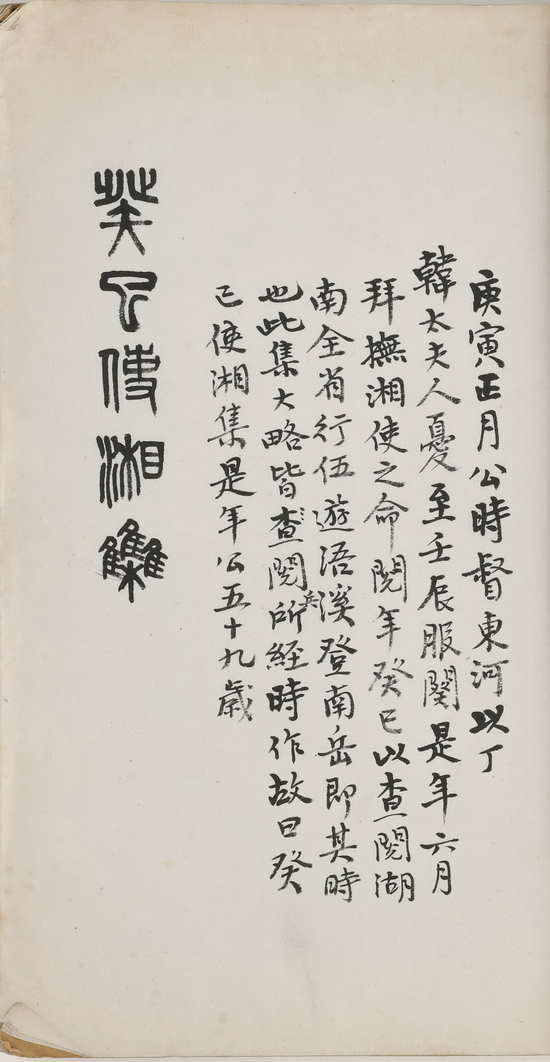 庚寅正月公時督東河以丁
韓太夫人憂至壬辰服闋是年六月
拜撫湘使之命閱年癸巳以查閱湖
南全省行伍遊浯溪登南岳即其時
也此集大略皆查閱兵所經時作故曰癸
巳使湘集是年公五十九歲
癸巳使湘集